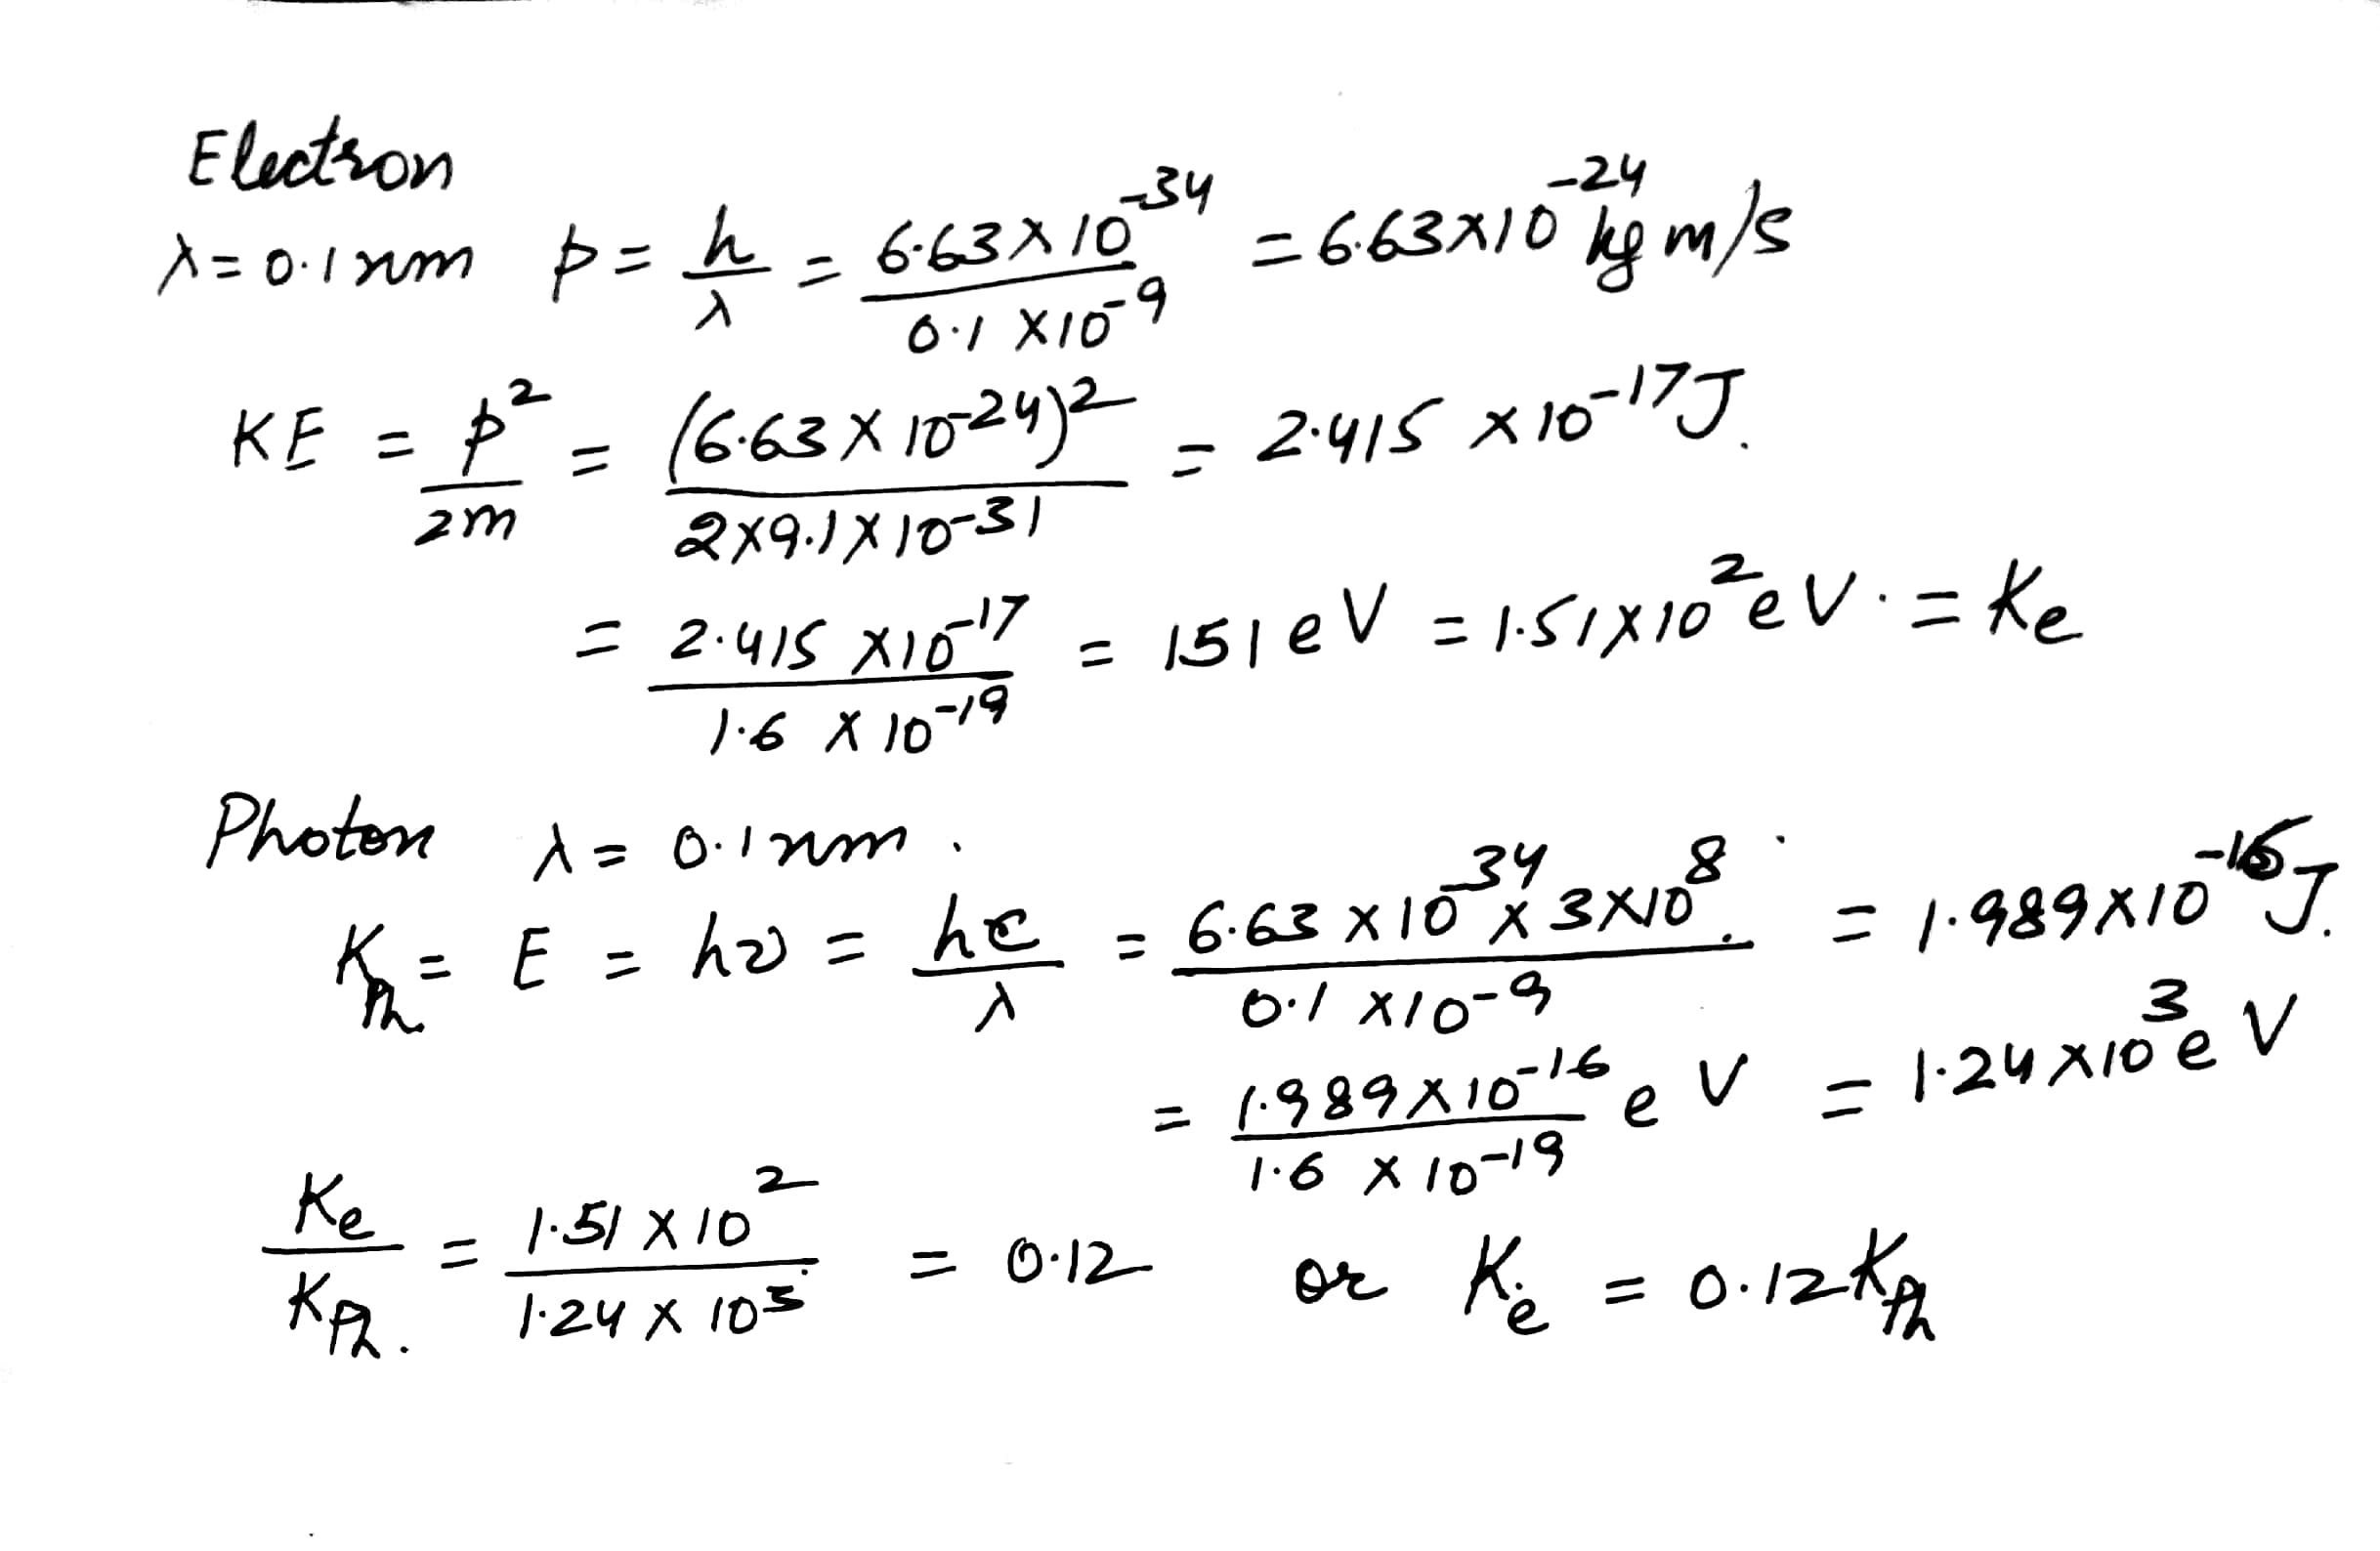 Electron
λ = 0.1 nm p = h/λ = 6.63 × 10^-34 / 0.1 × 10^-9 = 6.63 × 10^-24 kg m/s
KE = p^2/2m = (6.63 × 10^-24)^2 / 2×9.1×10^-31 = 2.415 × 10^-17 J.
= 2.415 × 10^-17 / 1.6 × 10^-19 = 151 eV = 1.51 × 10^2 eV. = Ke
Photon λ = 0.1 nm.
Kph = E = hν = hc/λ = 6.63 × 10^-34 × 3×10^8 / 0.1 × 10^-9 = 1.989 × 10^-16 J.
= 1.989 × 10^-16 / 1.6 × 10^-19 eV = 1.24 × 10^3 eV
Ke/Kph. = 1.51 × 10^2 / 1.24 × 10^3 = 0.12 or Ke = 0.12 Kph